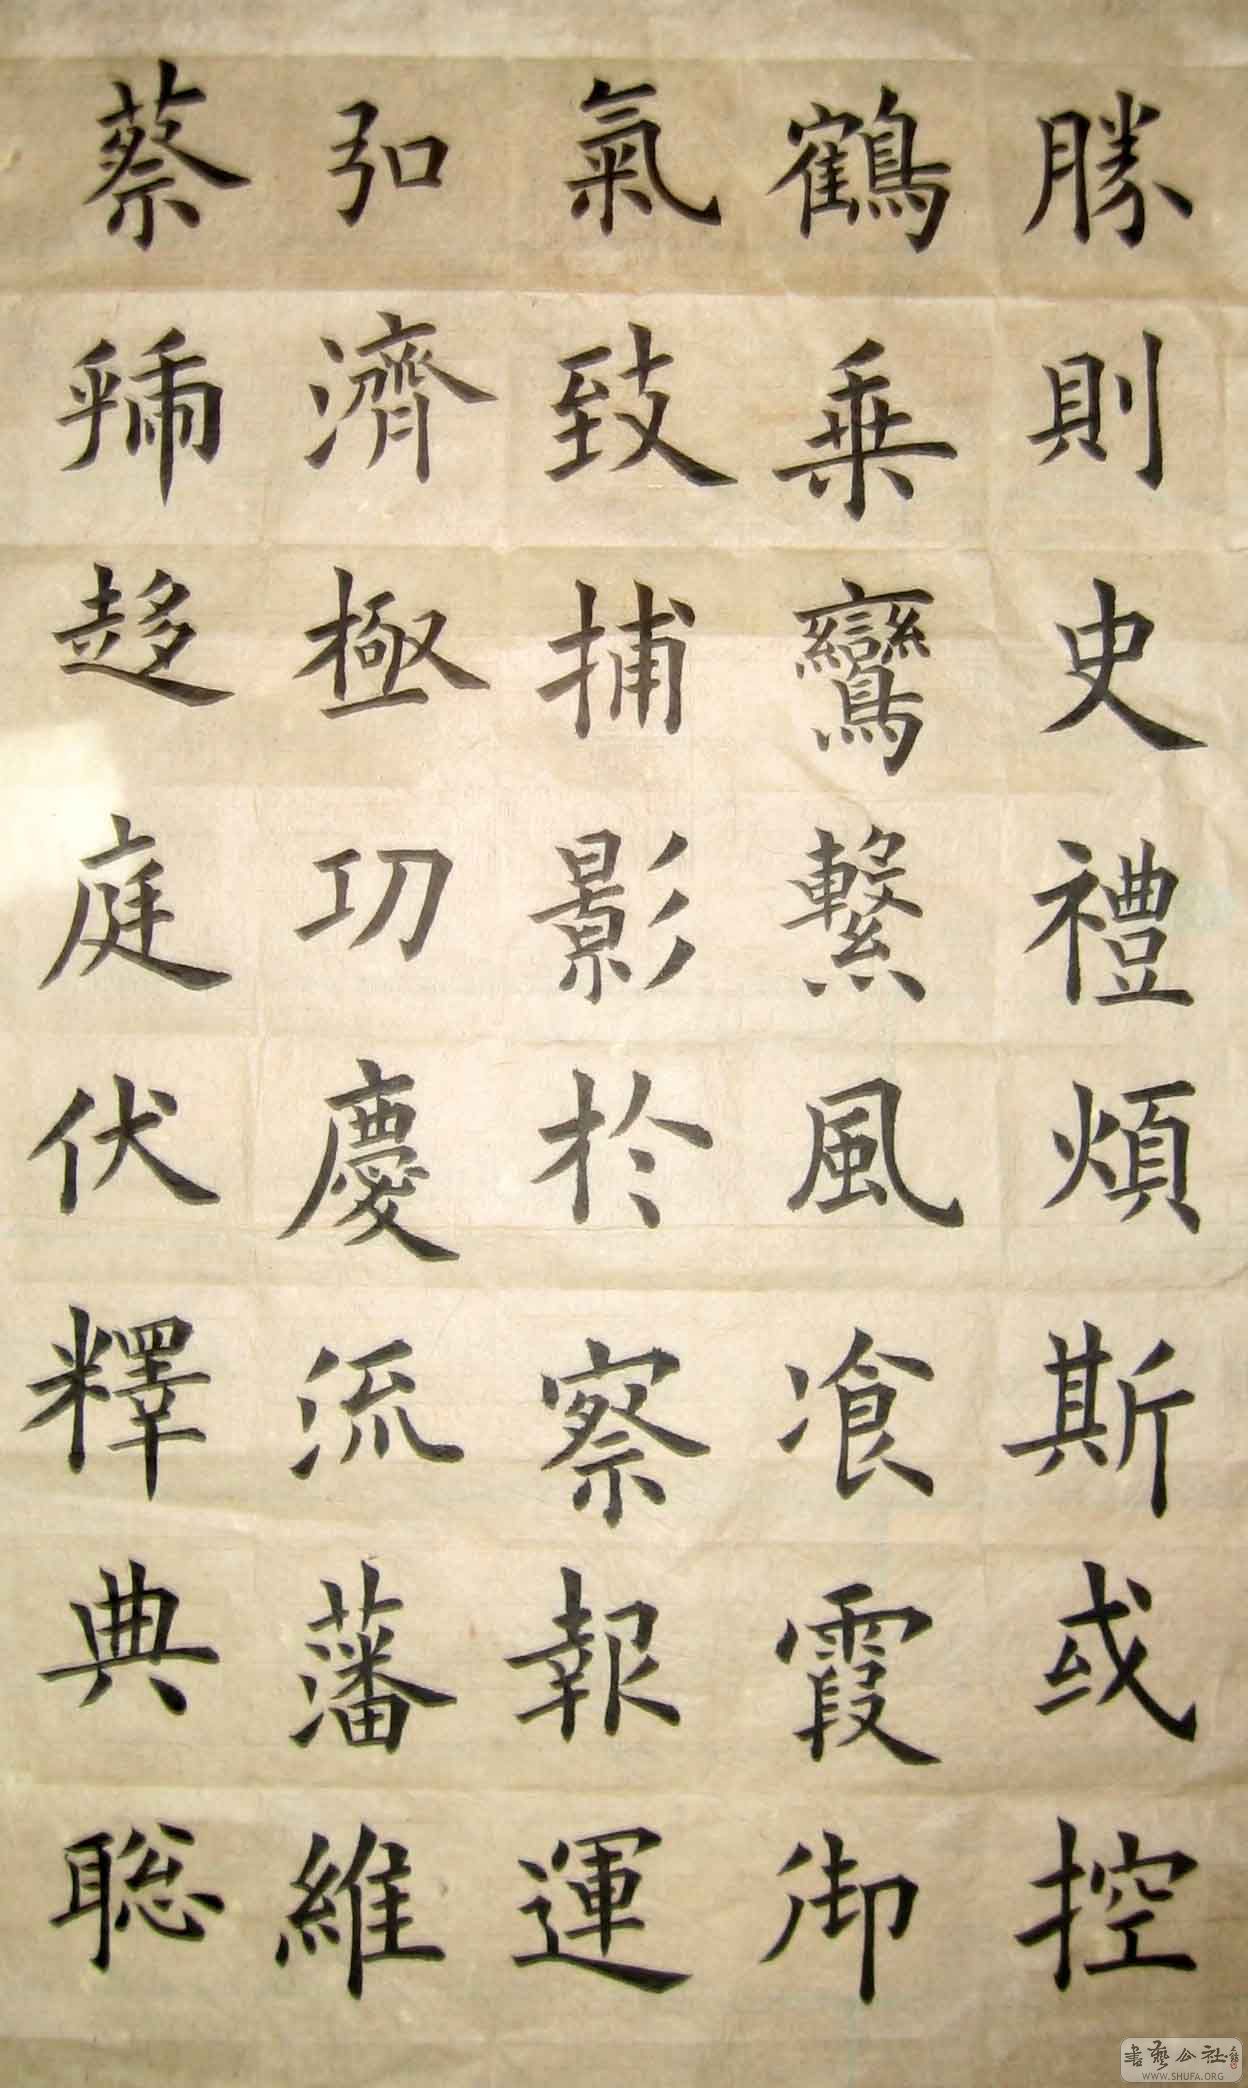 勝則史禮煩斯或控
鶴乗鸞繫風飡霞御
氣致捕影於察報運
弘濟極功慶流藩維
蔡趍庭伏釋典聡
書藝公社
WWW.SHUFA.ORG